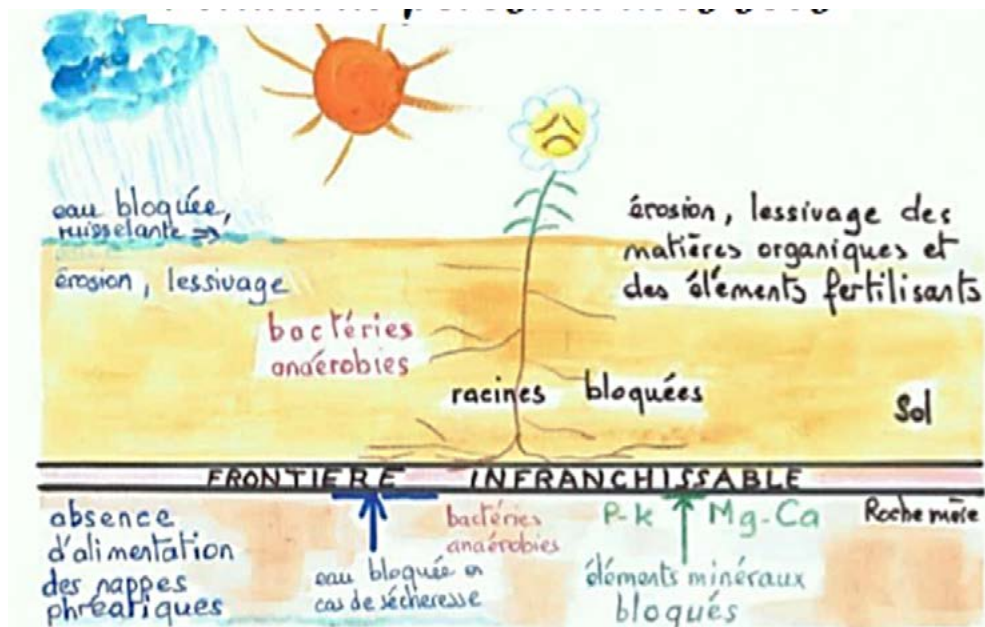 eau bloquée,
ruisselante =>
érosion, lessivage
érosion, lessivage des
matières organiques et
des éléments fertilisants
bactéries
anaérobies
racines bloquées
Sol
FRONTIERE INFRANCHISSABLE
absence
d'alimentation
des nappes
phréatiques
eau bloquée en
cas de sécheresse
bactéries
anaérobies
P-K Mg-Ca
éléments minéraux
bloqués
Roche mère